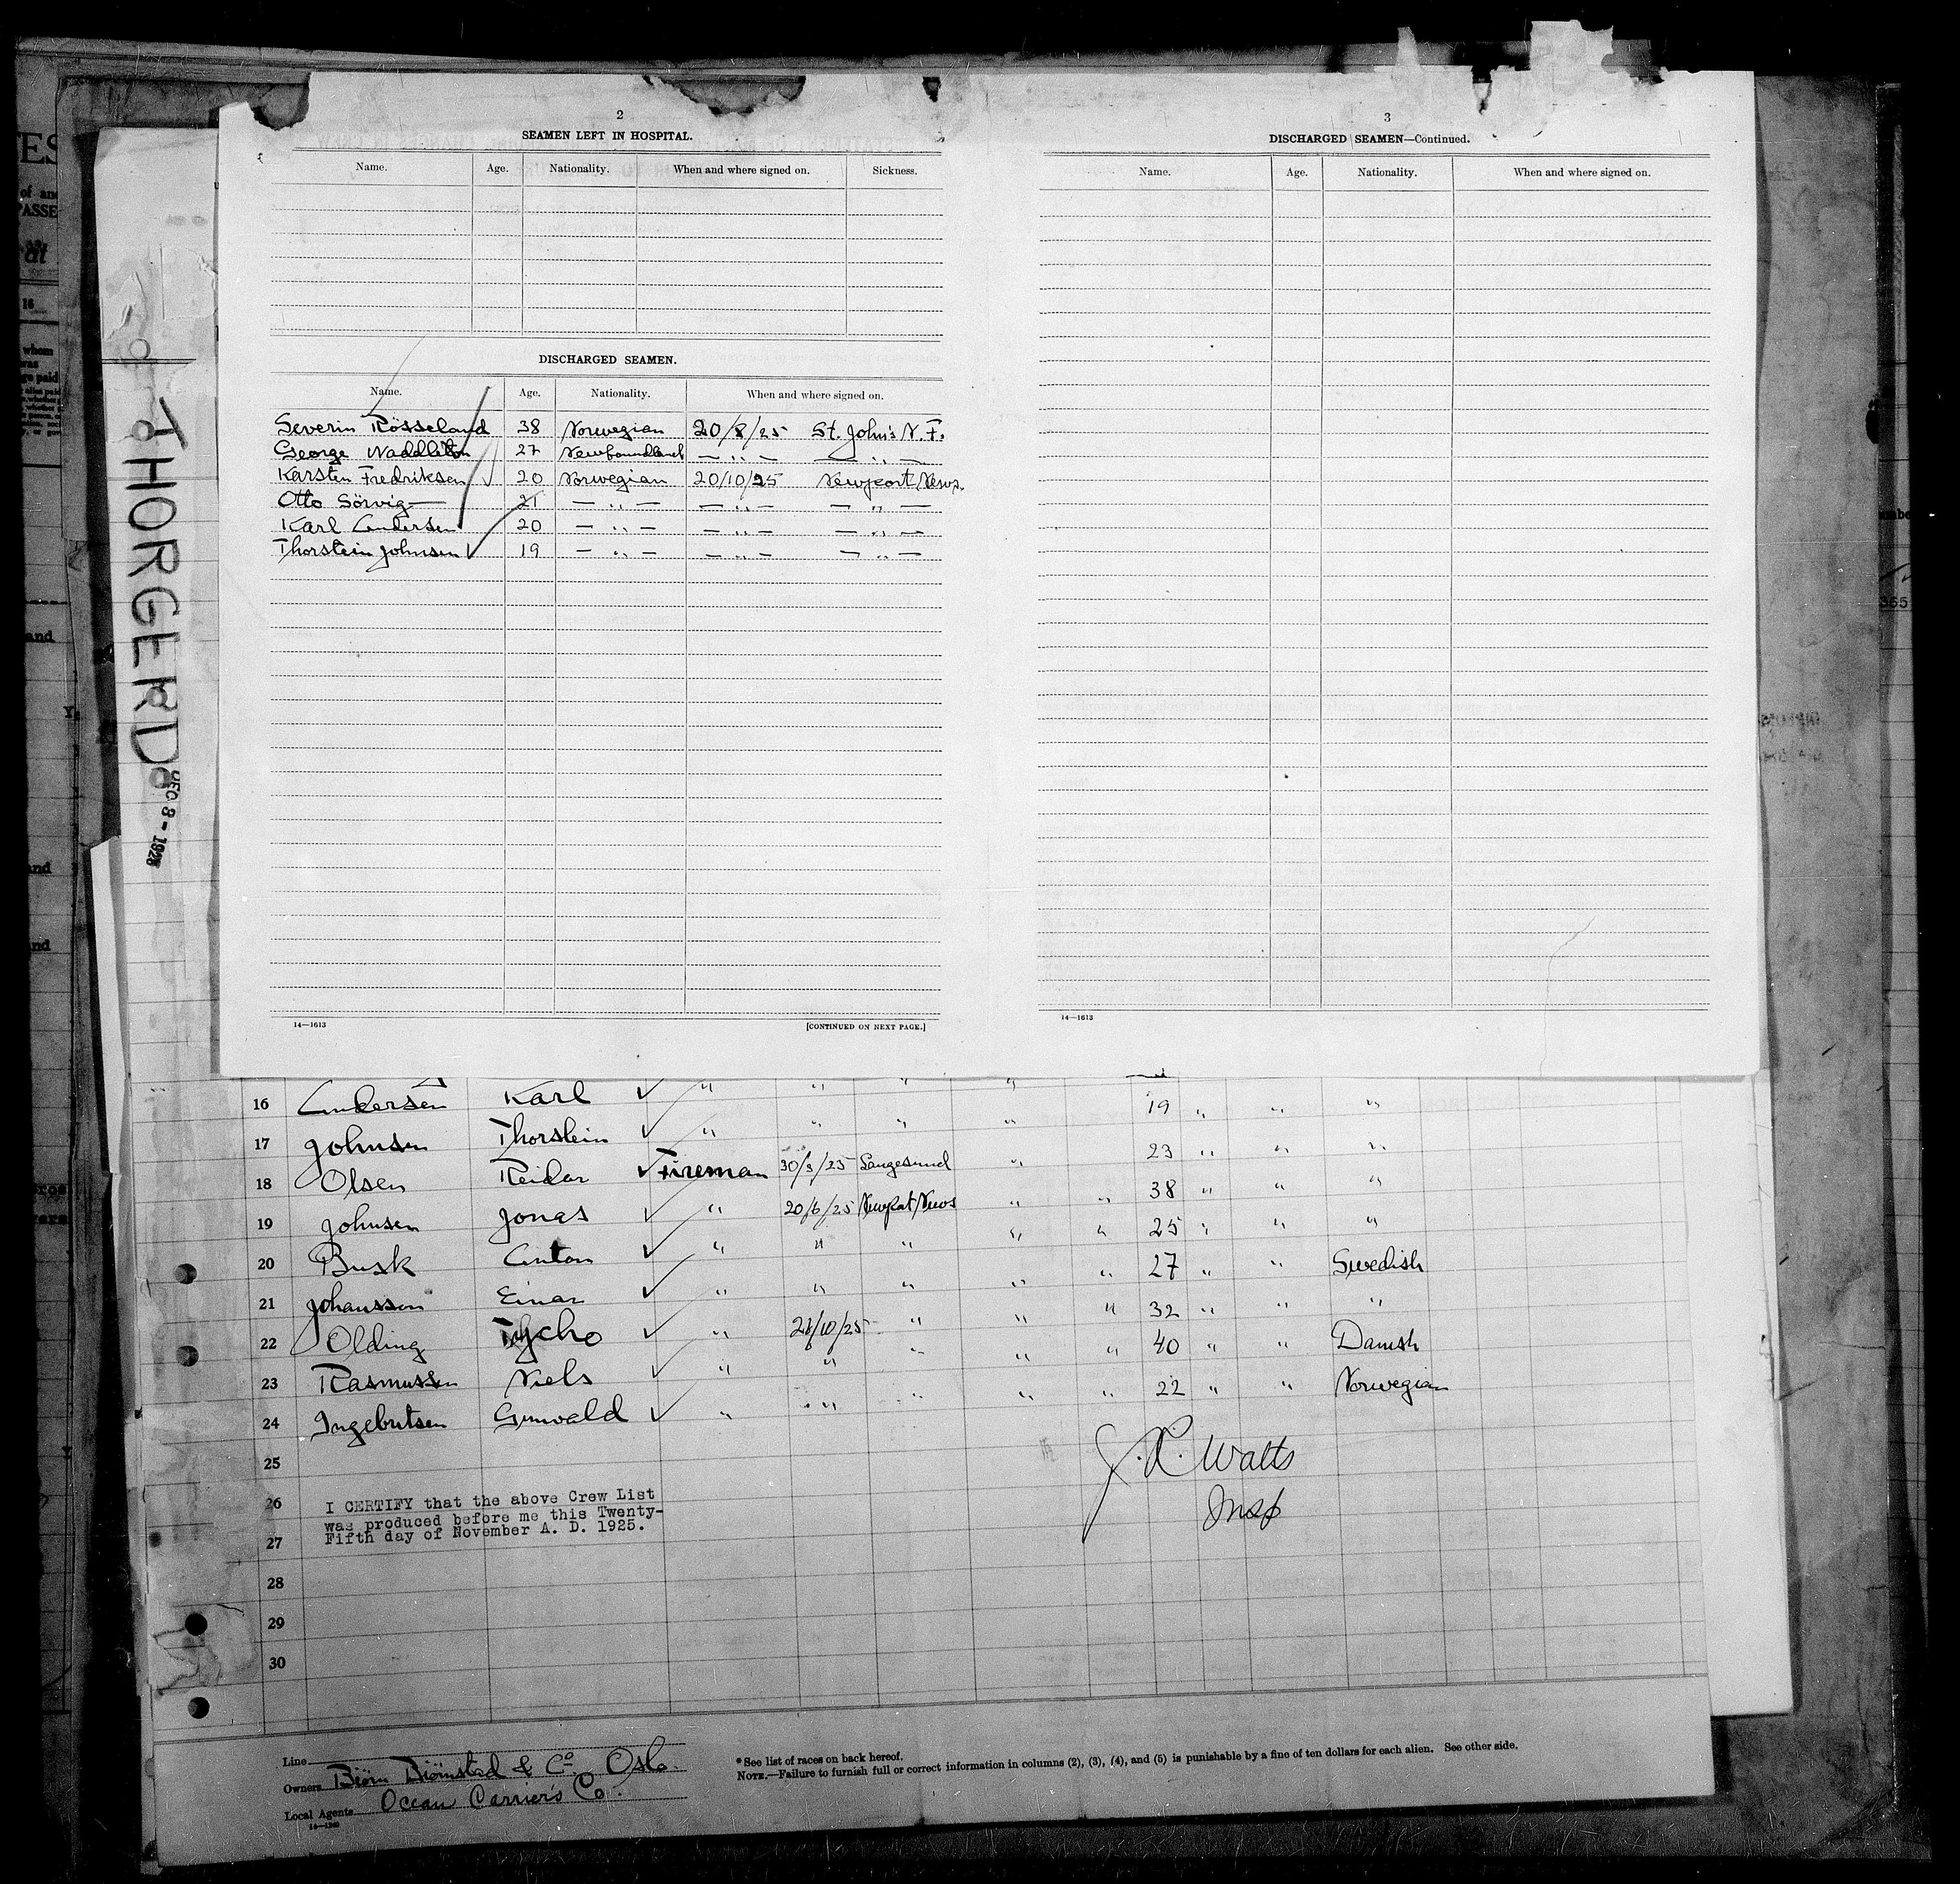 2
SEAMEN LEFT IN HOSPITAL.
Name. Age. Nationality. When and where signed on. Sickness.
DISCHARGED SEAMEN.
Name. Age. Nationality. When and where signed on.
Severin Rösseland 38 Norwegian 20/8/25 St. John's N. F.
George Waddleton 27 Newfoundland — " — — " —
Karsten Fredriksen 20 Norwegian 20/10/25 Newport News.
Otto Sörvig 21 — " — — " — — " —
Karl Andersen 20 — " — — " — — " —
Thorstein Johnsen 19 — " — — " — — " —
14—1613 [CONTINUED ON NEXT PAGE.]
3
DISCHARGED SEAMEN—Continued.
Name. Age. Nationality. When and where signed on.
14—1613
THORGERD
DEC 8 - 1925
16 Andersen Karl ✓ " " " "
17 Johnsen Thorstein ✓ " " " " 19 " " "
18 Olsen Reidar ✓ Fireman 30/3/25 Langesund " 23 " " "
19 Johnsen Jonas ✓ " 20/6/25 Newport News " " 38 " " "
20 Busk Anton ✓ " " " " " 25 " " "
21 Johansson Einar ✓ " " " " " 27 " " Swedish
22 Olding Tycho ✓ " 21/10/25 " " " 32 " " "
23 Rasmussen Niels ✓ " " " " " 40 " " Danish
24 Ingebritsen Gunvald ✓ " " " " " 22 " " Norwegian
25
J. R. Watts
Insp
26
27
I CERTIFY that the above Crew List
was produced before me this Twenty-
Fifth day of November A. D. 1925.
28
29
30
Line
Owners Björn Björnstad & Co. Oslo.
Local Agents Ocean Carrier's Co.
14—1240
* See list of races on back hereof.
NOTE.—Failure to furnish full or correct information in columns (2), (3), (4), and (5) is punishable by a fine of ten dollars for each alien. See other side.